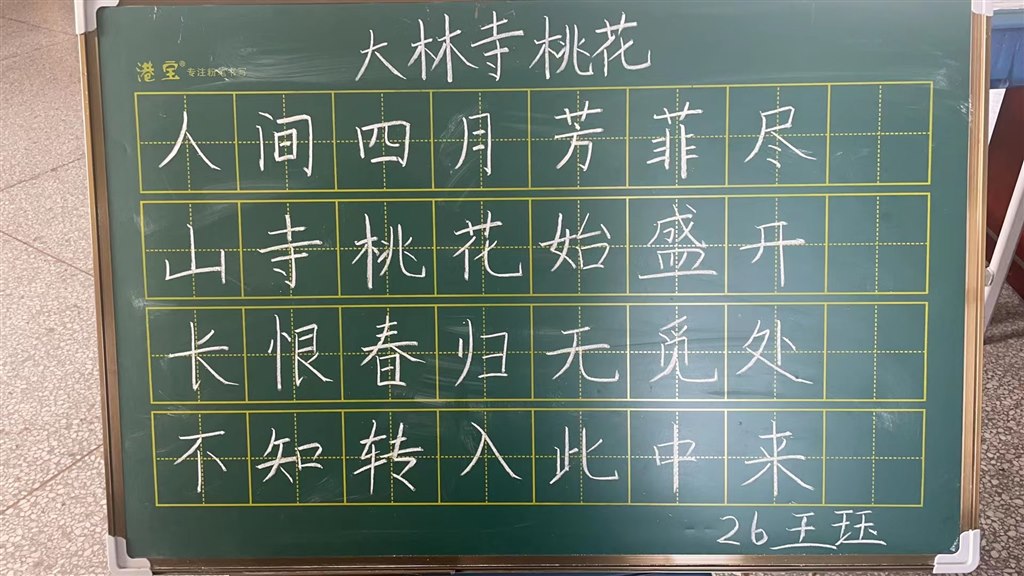 大林寺桃花
港宝® 专注粉笔书写
人间四月芳菲尽
山寺桃花始盛开
长恨春归无觅处
不知转入此中来
26王珏